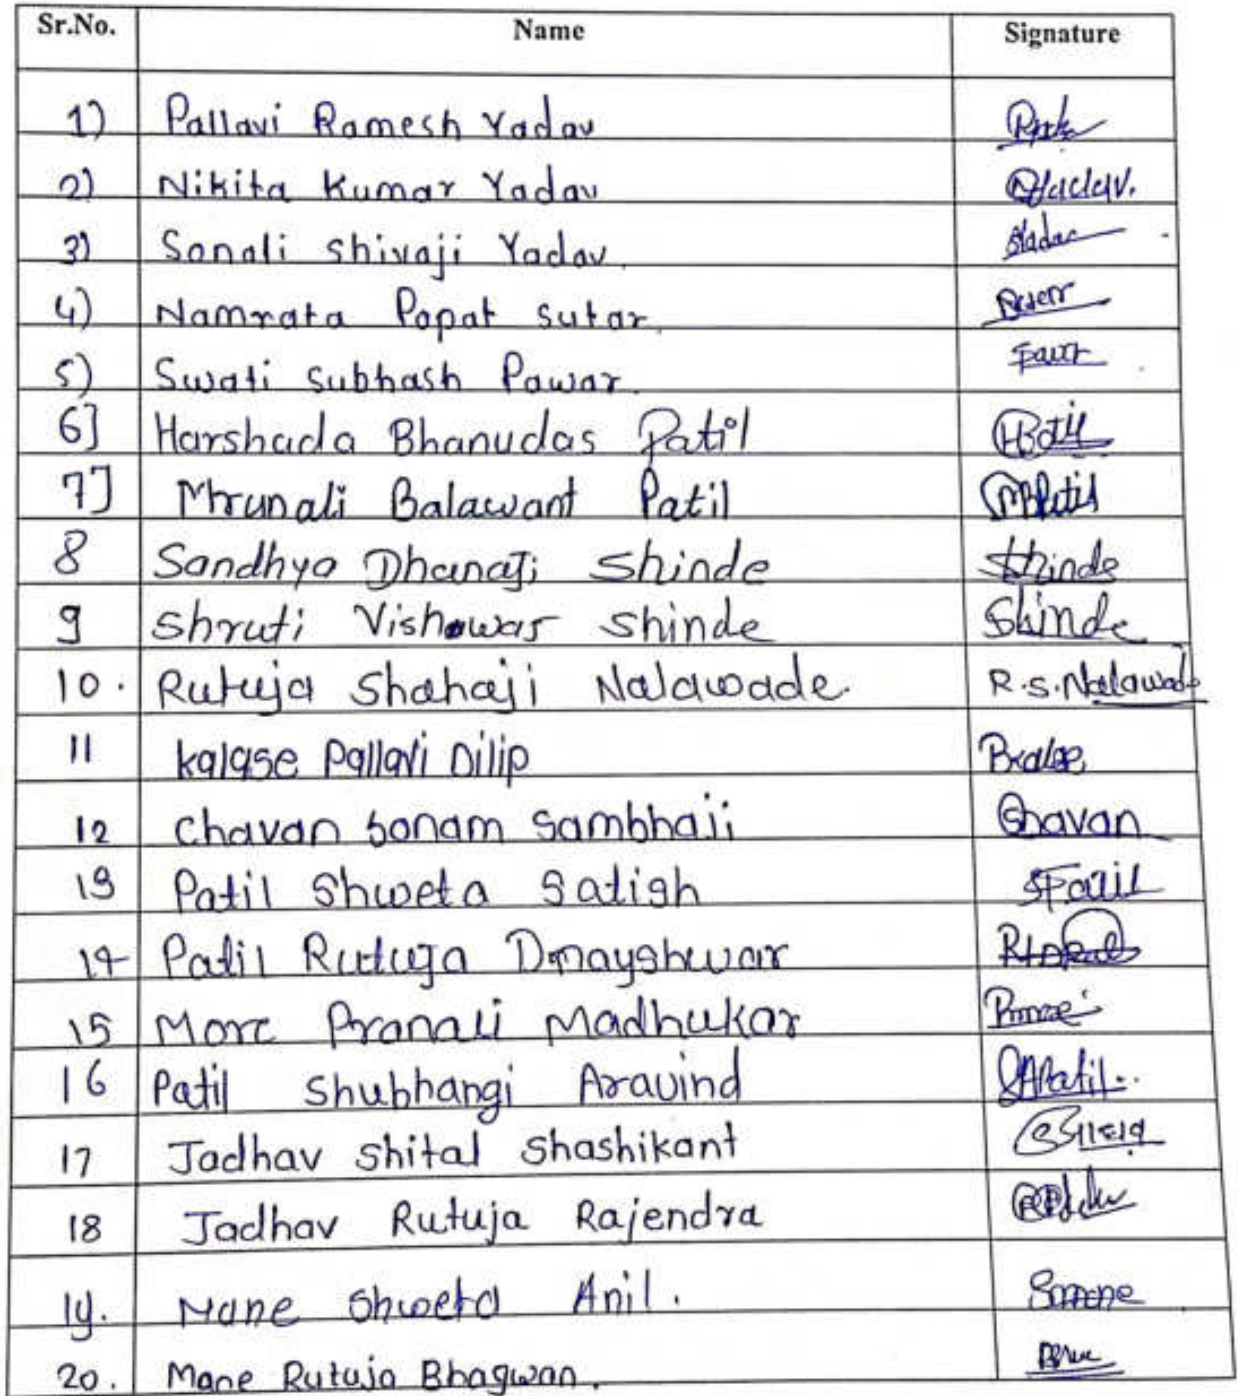 Sr.No. Name Signature
1) Pallavi Ramesh Yadav
2) Nikita Kumar Yadav
3) Sonali Shivaji Yadav.
4) Namrata Popat Sutar.
5) Swati Subhash Pawar.
6] Harshada Bhanudas Patil
7] Mrunali Balawant Patil MBPatil
8 Sandhya Dhanaji Shinde Shinde
9 Shruti Vishwas Shinde Shinde
10. Rutuja Shahaji Nalawade. R.S.Nalawade
11 kalase Pallavi Dilip
12 Chavan Sonam Sambhaji Chavan
13 Patil Shweta Satish
14 Patil Rutuja Dnayshwar
15 More Pranali Madhukar
16 Patil Shubhangi Aravind SAPatil
17 Jadhav Shital Shashikant
18 Jadhav Rutuja Rajendra
19. Mane Shweta Anil.
20. Mane Rutuja Bhagwan.